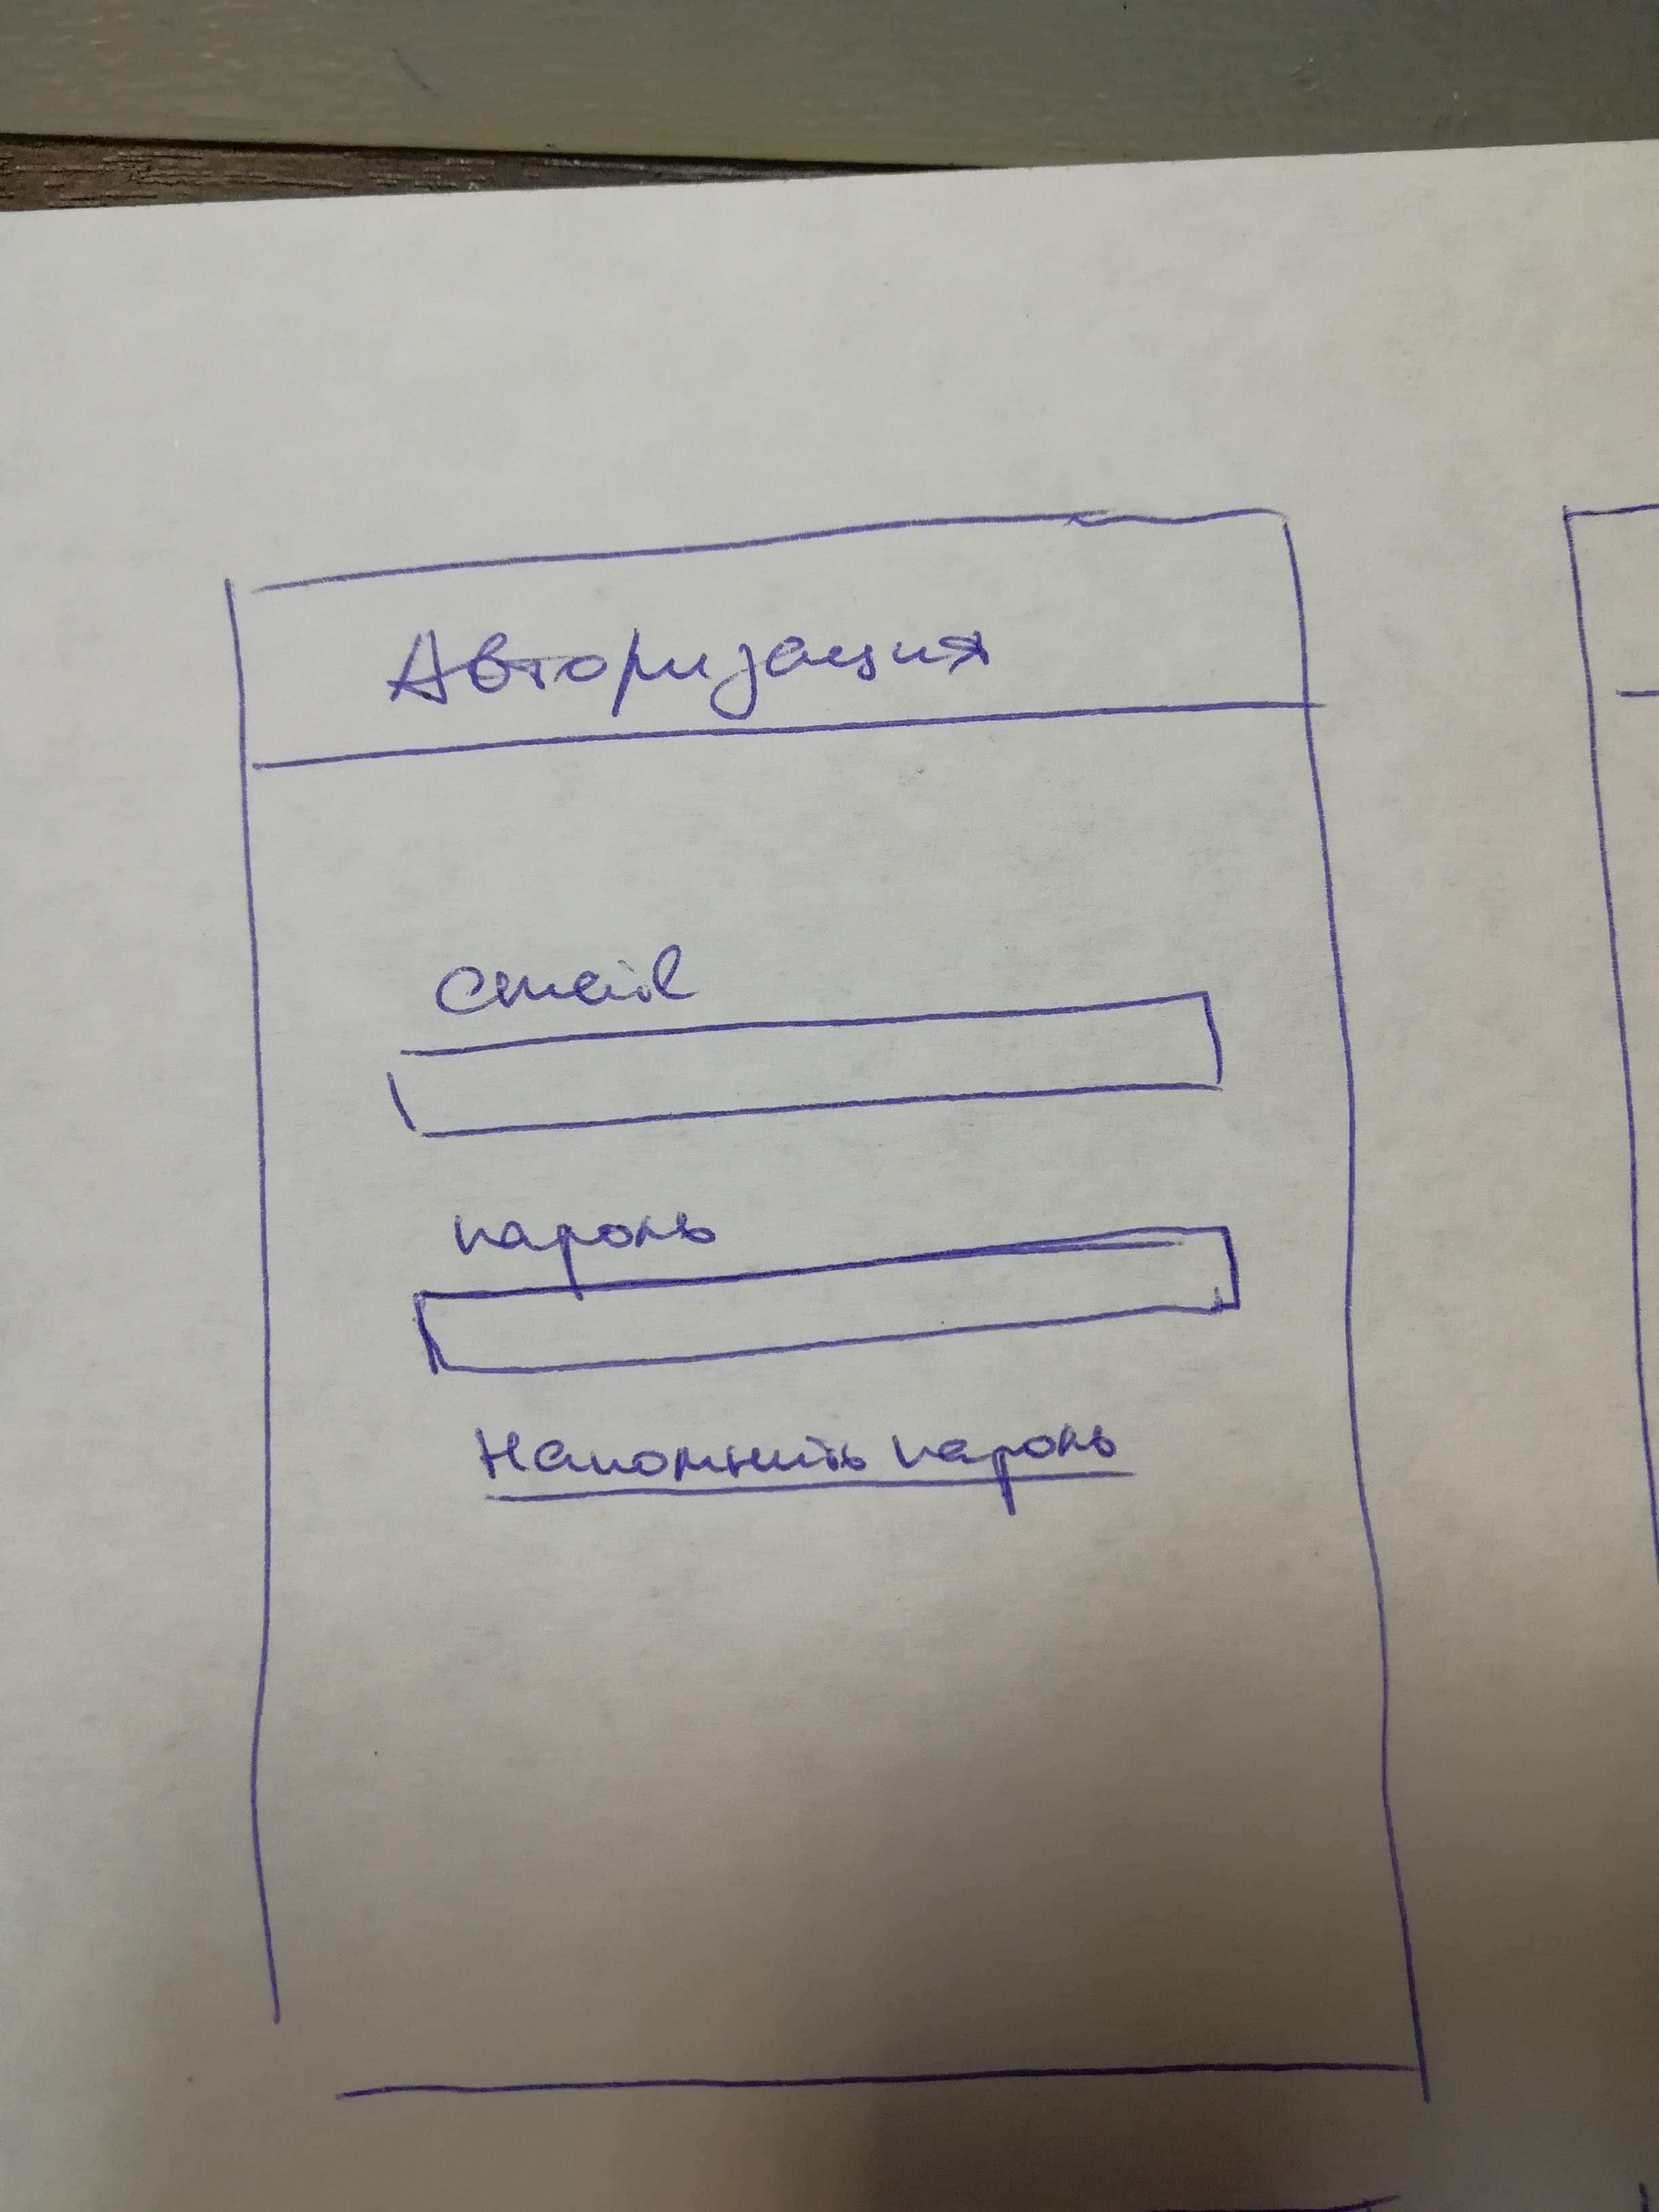 Авторизация
email
пароль
Напомнить пароль